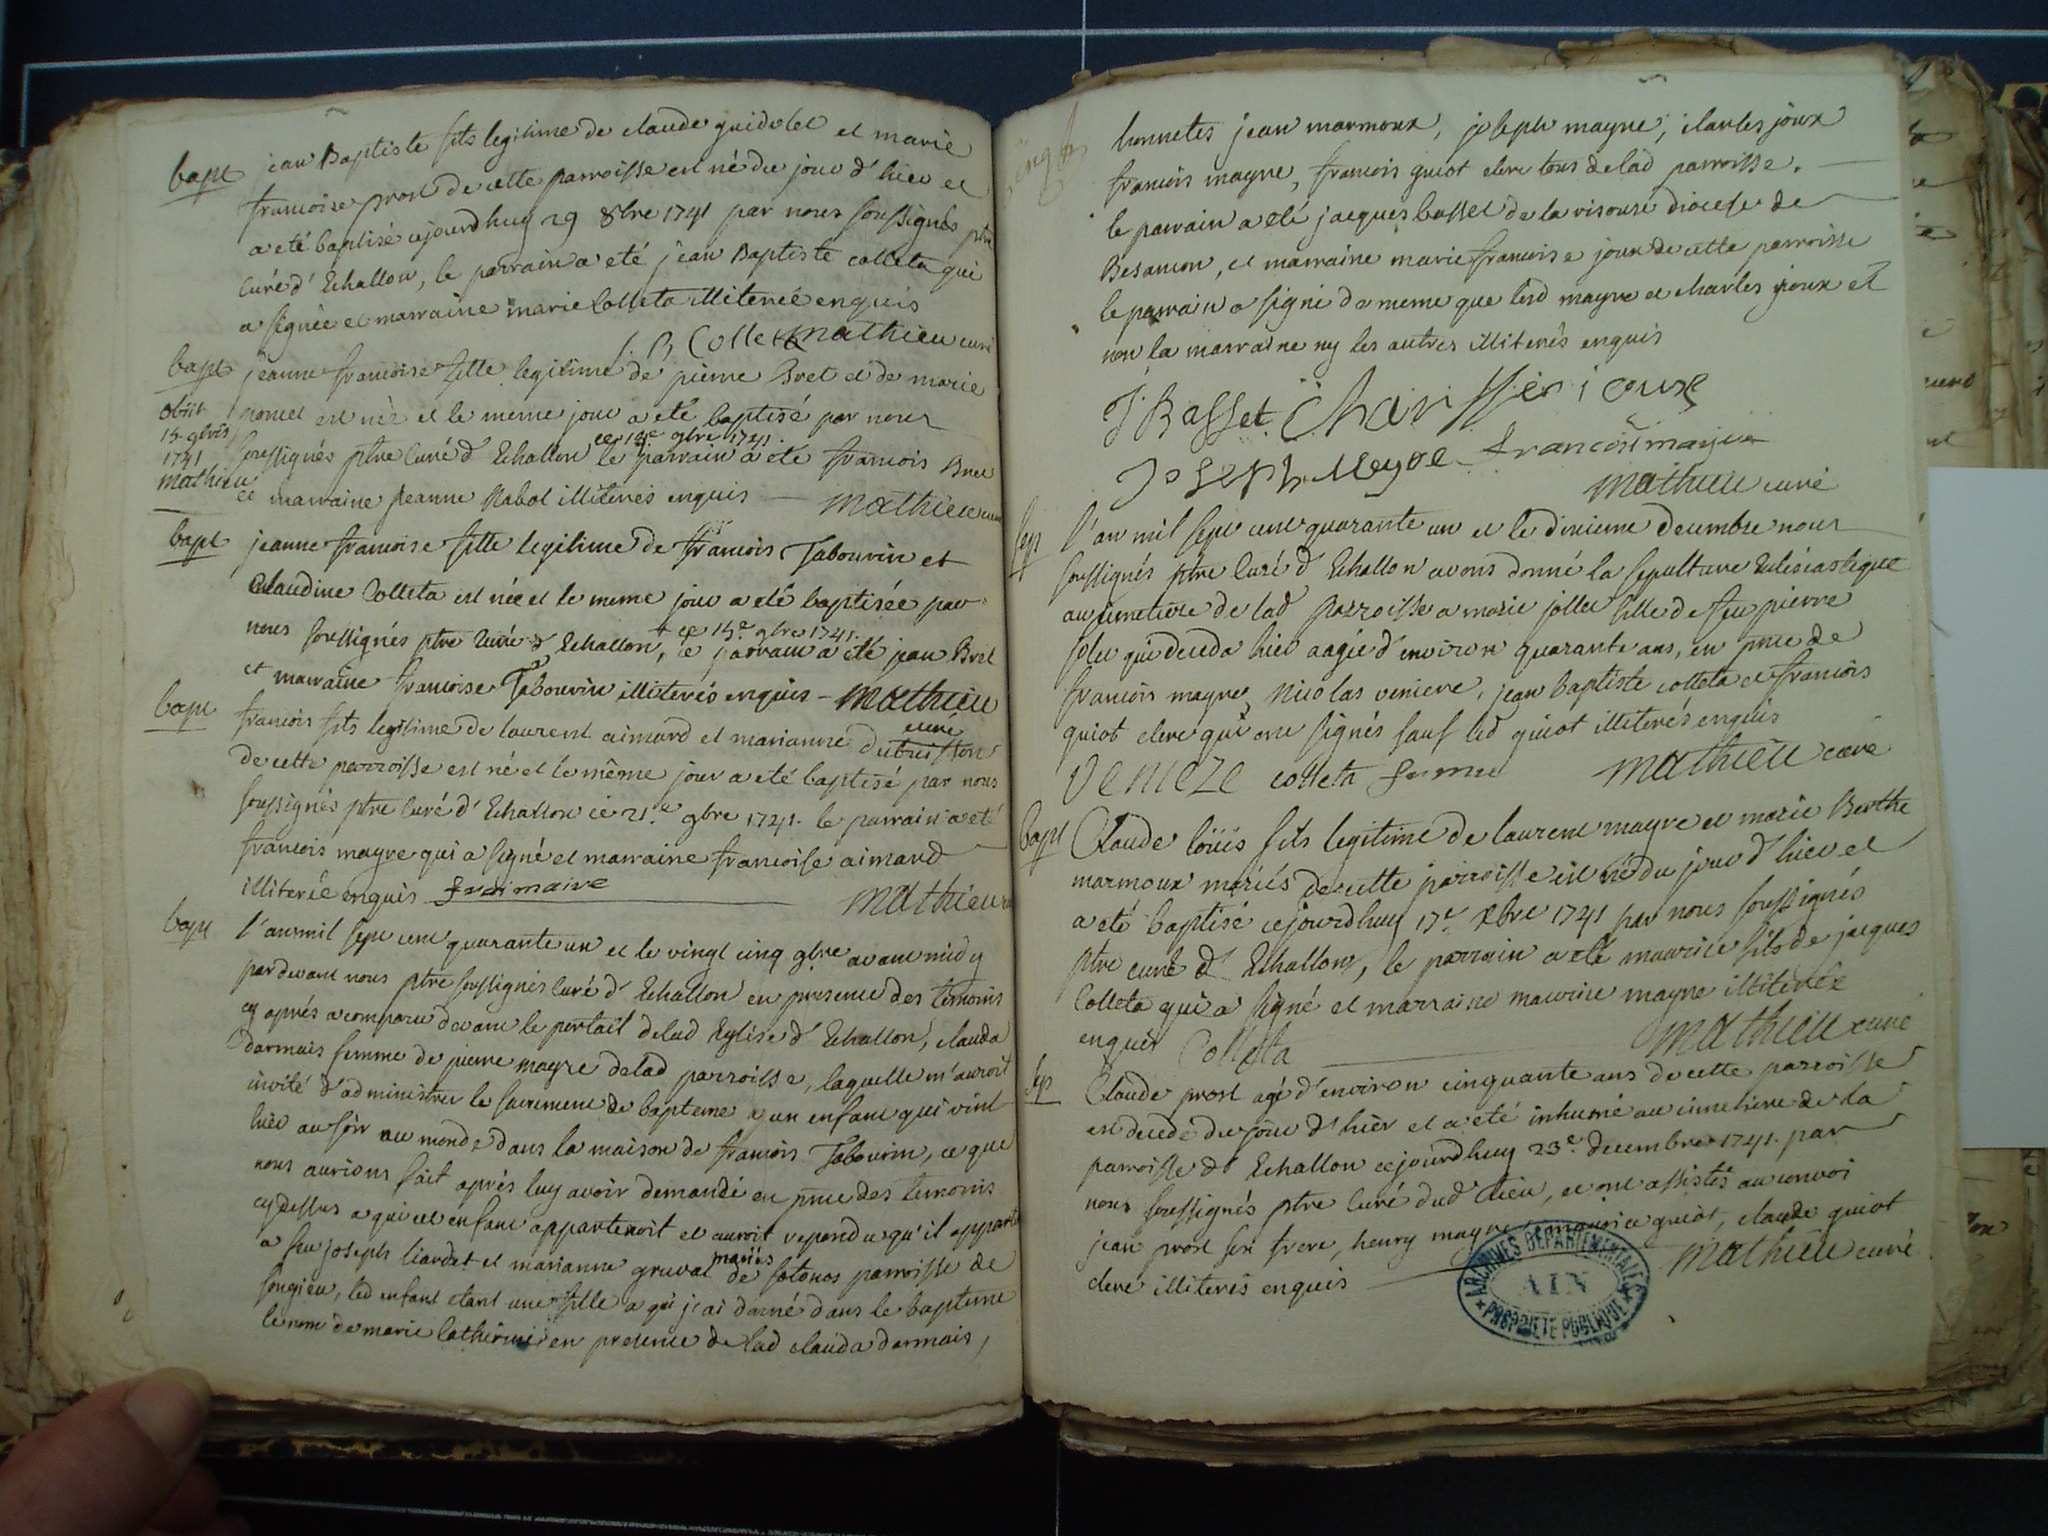 bapt jean Baptiste fils legitime de claude guidolet et marie
francoise prost de cette parroisse est né du jour d'hier et
a eté baptisé cejourdhuy 29 8bre 1741 par nous soussignés ptre
Curé d'Echallon, le parrain a eté jean Baptiste colleta qui
a signée et marraine marie Colleta illiterée enquis
J. B Collet Mathieu curé
bapt jeanne francoise fille legitime de pierre Bret et de marie
est née et le meme jour a eté baptisé par nous
obiit
15 9bris
1741
mathieu
ce 12e 9bre 1741.
soussignés ptre Curé d'Echallon le parrain a eté francois Bret
et marraine jeanne Nabot illiterés enquis — Mathieu curé
bapt jeanne francoise fille legitime de francois Tabourin et
Claudine Colleta est née et le meme jour a eté baptisée par
ce 15e 9bre 1741.
nous soussignés ptre Curé d'Echallon, le parrain a eté jean Bret
et marraine francoise Tabourin illiterés enquis – Mathieu
curé
bapt francois fils legitime de laurent aimard et marianne
de cette parroisse est né et le même jour a eté baptisé par nous
soussignés ptre Curé d'Echallon ce 21.e 9bre 1741. le parrain a eté
francois mayre qui a signé et marraine francoise aimard
illiterée enquis fraimaire Mathieu
bapt l'an mil sept cent quarante un et le vingt cinq 9bre avant midy
pardevant nous ptre soussignés Curé d'Echallon en presence des temoins
cy aprés a comparu devant le portail delad Eglise d'Echallon, clauda
darmais femme de pierre mayre delad parroisse, laquelle m'auroit
invité d'administrer le sacrement de bapteme a un enfant qui vint
hier au soir au monde dans la maison de francois Tabourin, ce que
nous aurions fait aprés luy avoir demandé en pnce des temoins
cy dessus a qui cet enfant appartenoit et auroit repondu qu'il apparte
a feu joseph liardet et marianne gruvat mariés de sotonos parroisse de
songieu, led enfant etant une fille a qui j'ai donné dans le bapteme
le nom de marie Catherine en presence de lad clauda darmais,
honnetes jean marmoux, joseph mayre, charles joux
francois mayre, francois guiot clerc tous delad parroisse.
le parrain a eté jacques basset de la risouse diocese de
Besancon, et marraine marie francoise joux de cette parroisse
le parrain a signé de meme que lesd mayre et charles joux et
non la marraine ny les autres illiterés enquis
J Basset Charlles joux
Joseph Meyre francois mayre
Mathieu curé
sep l'an mil sept cent quarante un et le dixieme decembre nous
soussignés ptre Curé d'Echallon avons donné la sepulture Eclésiastique
au cimetiere de lad Parroisse a marie jollet fille de feu pierre
jolet qui deceda hier aagée d'environ quarante ans, en pnce de
francois mayre, Nicolas veniere, jean baptiste colleta et francois
guiot clerc qui ont signés sauf led guiot illiterés enquis
Veneze colleta Mathieu curé
bapt Claude loüis fils legitime de laurent mayre et marie Berthe
marmoux mariés de cette parroisse est né du jour d'hier et
a eté baptisé cejourdhuy 17.e Xbre 1741 par nous soussignés
ptre curé d'Echallon, le parrain a eté maurice fils de jacques
Colleta qui a signé et marraine maurise mayre illiterée
enquis Colleta Mathieu curé
sep Claude prost agé d'environ cinquante ans de cette parroisse
est decedé du jour d'hier et a eté inhumé au cimetiere de la
parroisse d'Echallon cejourdhuy 23.e decembre 1741. par
nous soussignés ptre Curé dud lieu, et ont assistés au convoi
jean prost son frere, henry mayre, maurice guiot, claude guiot
clerc illiterés enquis Mathieu curé
ARCHIVES DEPARTEMENTALES
AIN
PROPRIETE PUBLIQUE